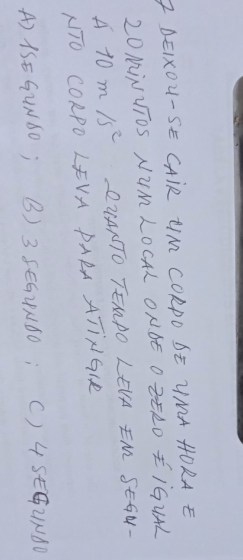 7 DEIXOU-SE CAIR UM CORPO DE UMA HORA E
20 MINUTOS NUM LOCAL ONDE O ZERO É IGUAL
A 10 m/s² QUANTO TEMPO LEVA EM SEGU-
NTO CORPO LEVA PARA ATINGIR
A) 1 SEGUNDO ; B) 3 SEGUNDO ; C) 4 SEGUNDO